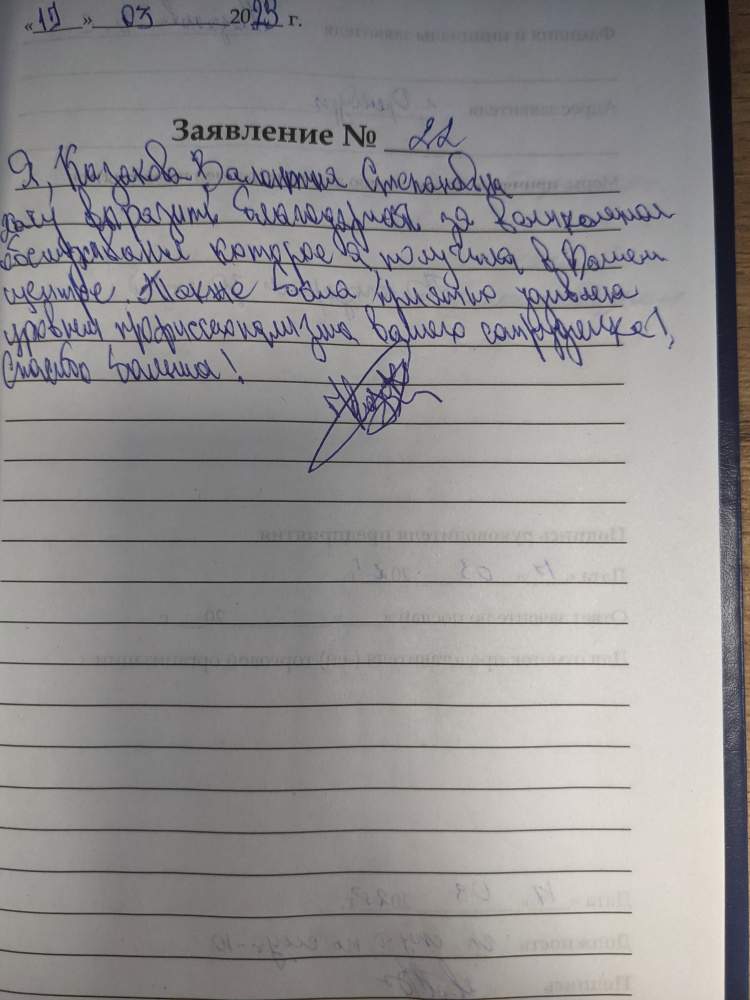 « 17 » 03 2023 г.
Заявление № 22
Я, Казакова Валентина Степановна
хочу выразить благодарность за великолепное
обслуживание которое я получила в Вашем
центре. Также была приятно удивлена
уровнем профессионализма вашего сотрудника!,
Спасибо больша!